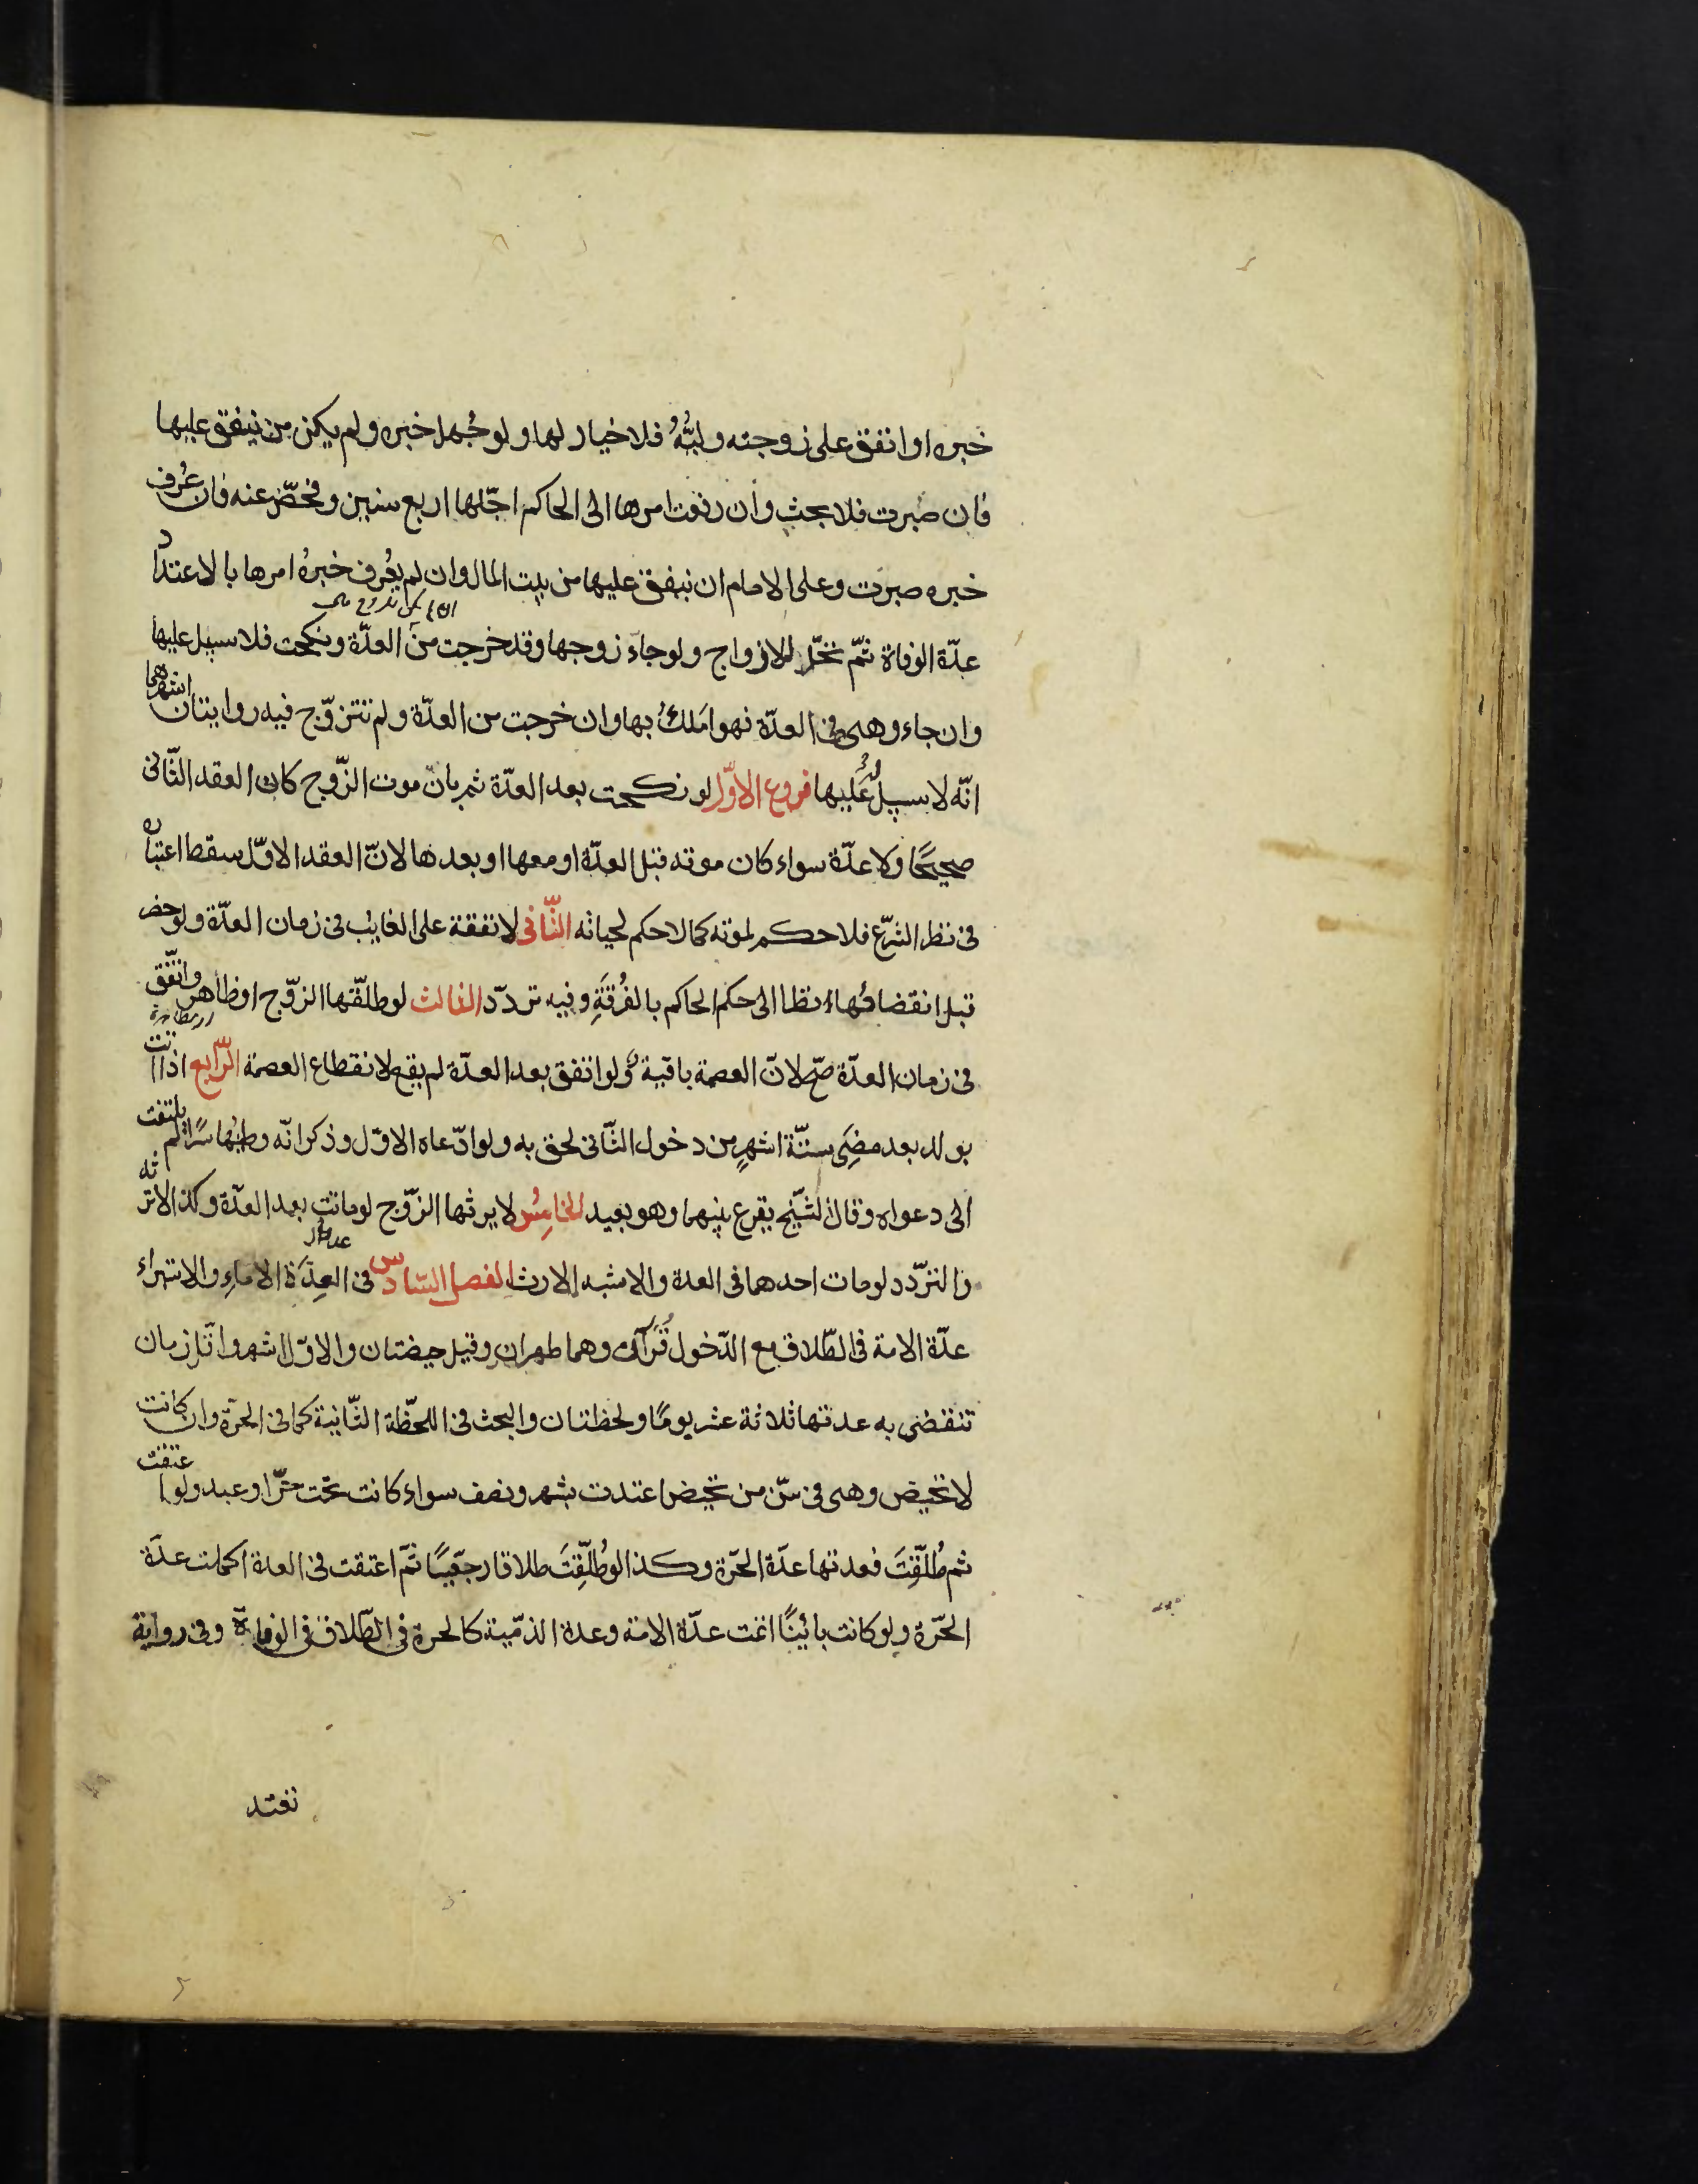 خبره او انفق على زوجته وليُّهُ فلا خيار لها ولو جُهل خبره ولم يكن من ينفق عليها
فان صبرت فلا بحث وان رفعت امرها الى الحاكم اجّلها اربع سنين وفحّص عنه فان عُرف
خبره صبرت وعلى الامام ان ينفق عليها من بيت المال وان لم يعُرف خبرهُ امرها بالاعتداد
عدّة الوفاة ثمّ تحلّ للازواج ولو جاء زوجها وقد خرجت من العدّة ونكحت فلا سبيل عليها
وان جاء وهى فى العدّة فهو املكُ بها وان خرجت من العدّة ولم تتزوّج فيه روايتان اشهرهما
انّه لا سبيل لهُ عليها فروع الاوّل لو نكحت بعد العدّة ثم بان موت الزّوج كان العقد الثّانى
صحيحًا ولا عدّة سواء كان موته قبل العدّة او معها او بعدها لانّ العقد الاوّل سقط اعتباره
فى نظر الشرّع فلا حكم لموته كما لا حكم لحياته الثّانى لا نفقة على الغايب فى زمان العدّة ولو حضر
قبل انقضائها نظرا الى حكم الحاكم بالفُرْقَةِ وفيه تردّد الثالث لو طلّقها الزّوج او ظاهر واتّفق
فى زمان العدّة صحّ لانّ العصمة باقية ولو اتفق بعد العدّة لم يقع لانقطاع العصمة الرّابع اذا اتت
بولد بعد مضِى ستّة اشهرٍ من دخول الثّانى لحق به ولو ادّعاه الاوّل وذكر انّه وطئها سرًا لم يلتفت
الى دعواه وقال الشّيخ يقرع بينهما وهو بعيد الخامِسُ لا يرثها الزّوج لو ماتت بعد العدّة وكذا لا ترثه
والتردّد لو مات احدهما فى العدة والاشبه الارث الفصل السّادس فى العِدّة الاماءِ والاستبراء
عدّة الامة فى الطّلاق مع الدّخول قُرْآن وهما طهران وقيل حيضتان والاوّل اشهر واقلّ زمان
تنقضى به عدتها ثلاثة عشر يومًا ولحظتان والبحث فى اللحّظة الثّانية كما فى الحرّة وان كانت
لا تحيض وهى فى سّن من تحيض اعتدت بشهر ونصف سواء كانت تحت حرّ او عبد ولو اعتقت
ثم طُلّقِتَ فعدتها عدّة الحرّة وكذا لو طُلّقِتَ طلاقا رجعّيًا ثمّ اعتقت فى العدة اكملت عدّة
الحرّة ولو كانت بائينًا اتمّت عدّة الامة وعدة الذمّية كالحرة فى الطّلاق فى الوفاة وفى رواية
تعتد